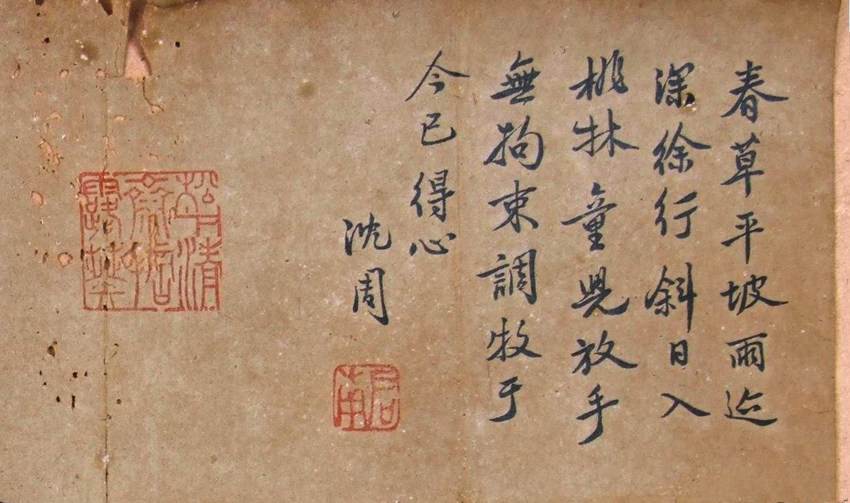 春草平坡雨迹
深徐行斜日入
桃林童児放手
無拘束調牧于
今已得心
沈周